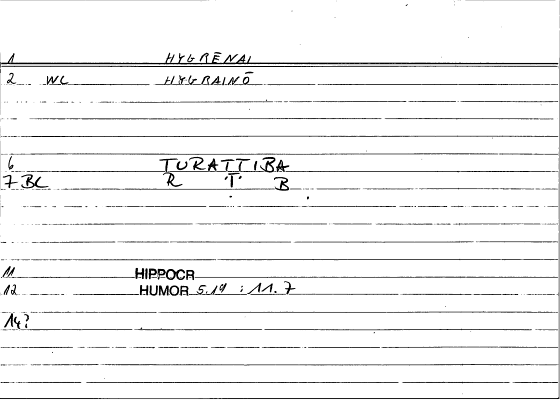 1 HYGRĒNAI
2 WL HYGRAINŌ
6 TURATTIBA
7 BL R Ṭ B
11 HIPPOCR
12 HUMOR 5.19 : 11.7
14?